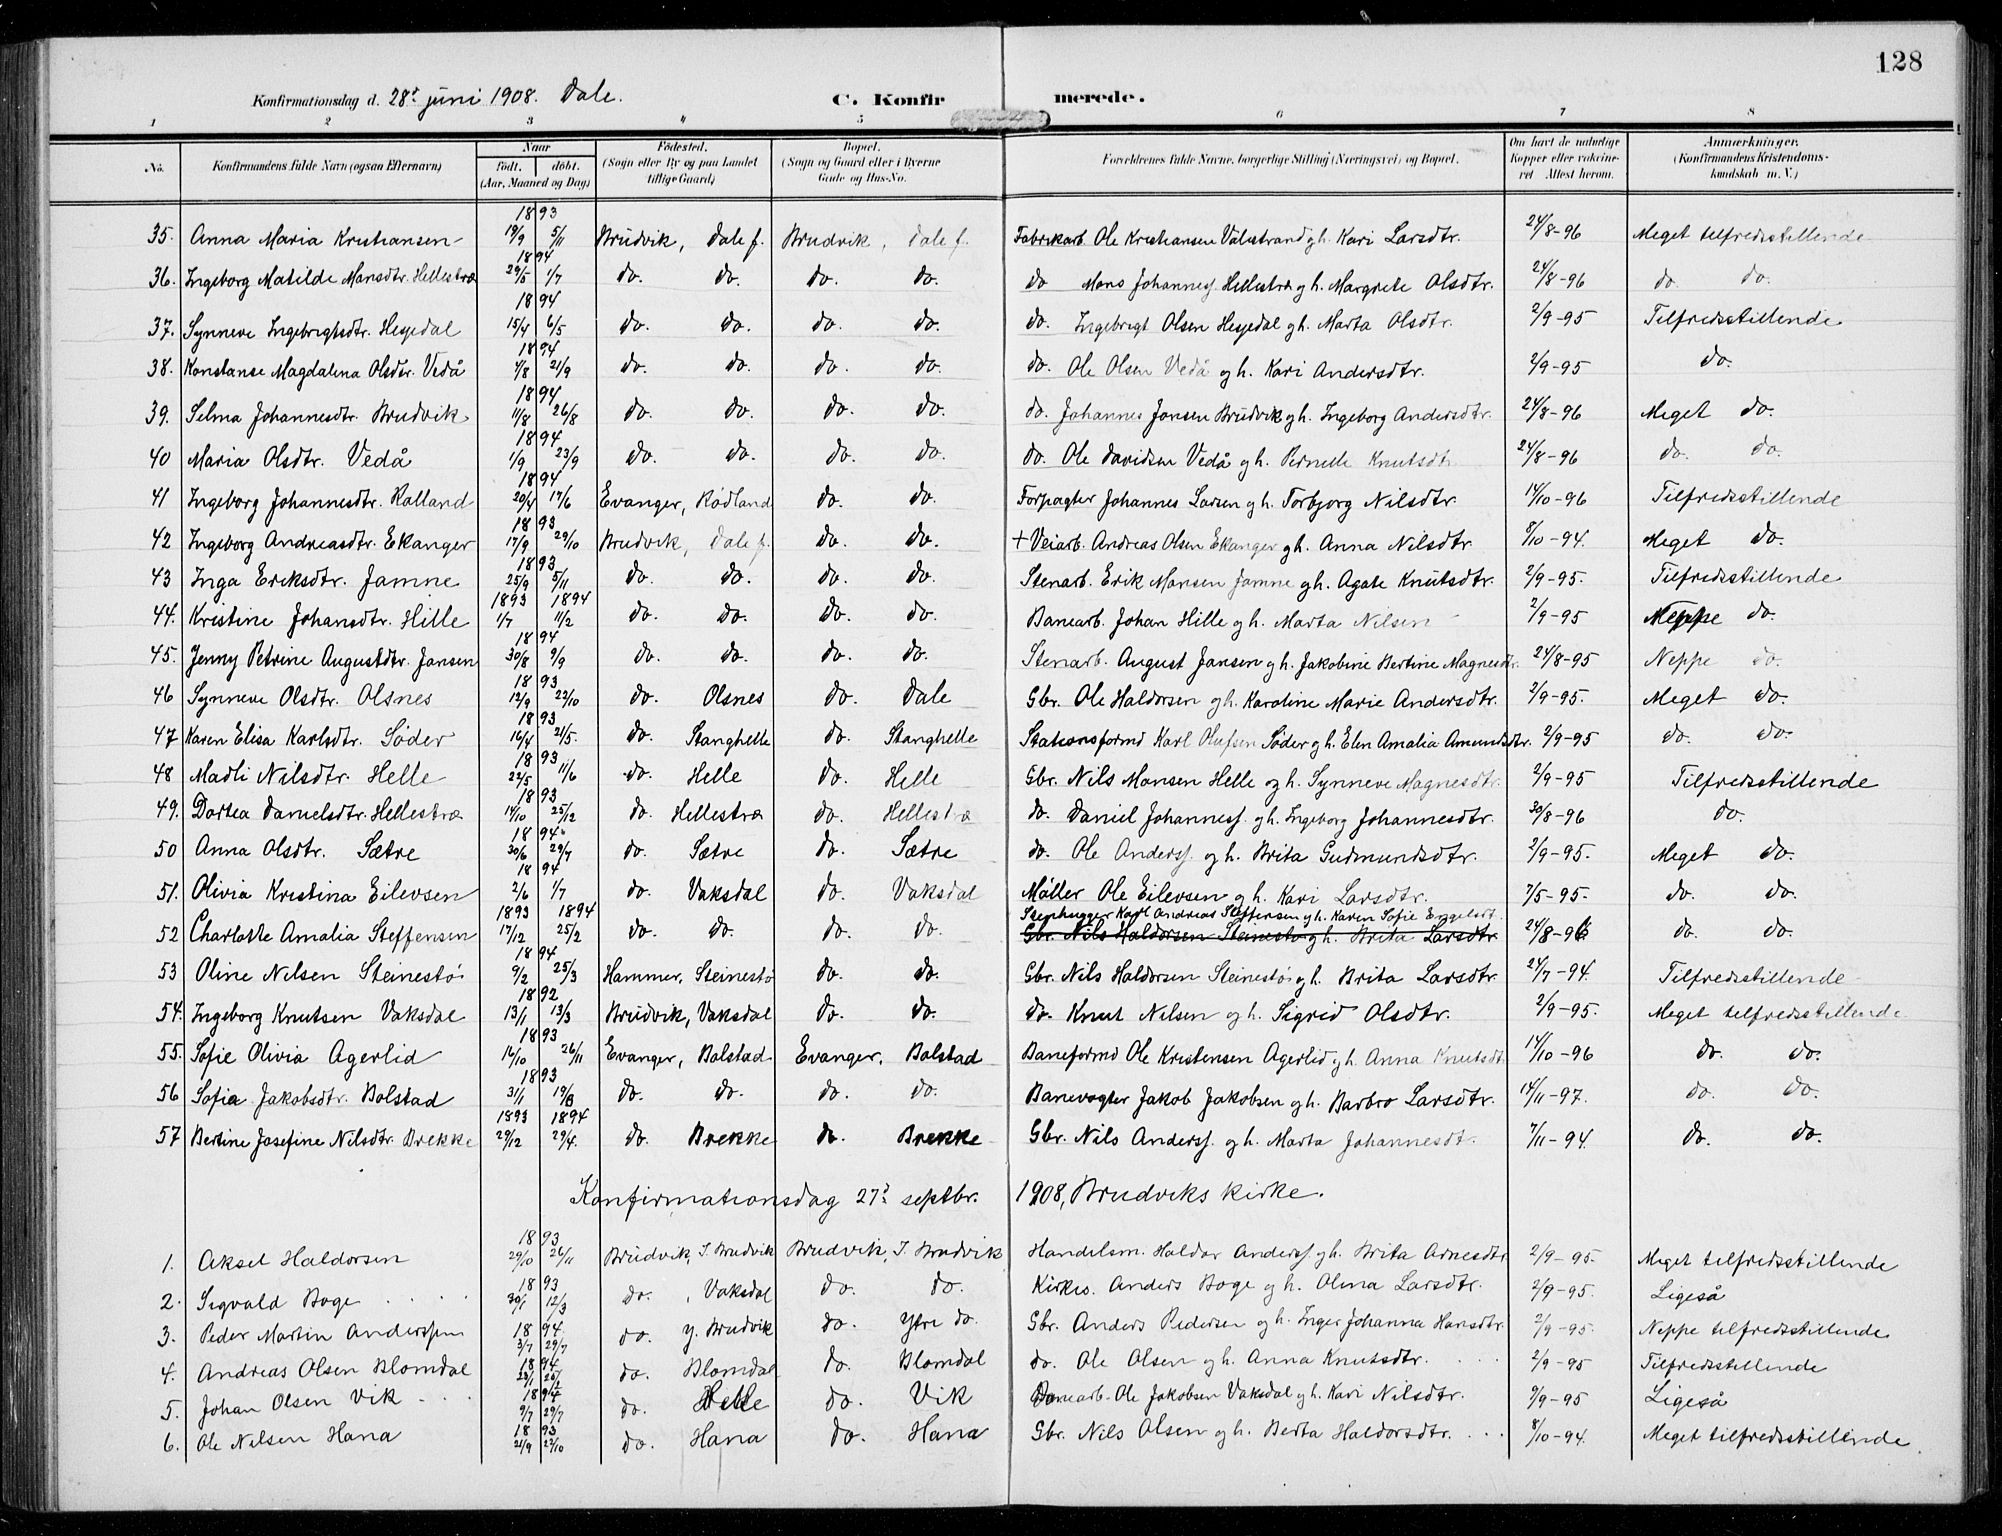 128
Konfirmationsdag d. 28de juni 1908. Dale. C. Konfirmerede.
1 2 3 4 5 6 7 8
No. Konfirmandens fulde Navn (ogsaa Efternavn) Naar født. døbt. (Aar, Maaned og Dag) Fødested. (Sogn eller By og paa Landet tillige Gaard) Bopæl. (Sogn og Gaard eller i Byerne Gade og Hus-No. Forældrenes fulde Navne, borgerlige Stilling (Næringsvei) og Bopæl. Om havt de naturlige Kopper eller vakcineret Attest herom. Anmærkninger. (Konfirmandens Kristendomskundskab m. V.)
35. Anna Maria Kristiansen 1893 19/9 5/11 Brudvik, Dale f. Brudvik, Dale f. Fabrikarb. Ole Kristiansen Valestrand og h. Kari Larsdtr. 24/8-96 Meget tilfredsstillende
36. Ingeborg Matilde Monsdtr. Hellestræ 1894 29/5 1/7 do. do. do. do. do Mons Johannesf. Hellestræ og h. Margrete Olsdtr. 24/8-96 do do.
37. Synneve Ingebrigtsdtr. Hesjedal 1894 15/4 6/5 do. do. do. do. do. Ingebrigt Olsen Hesjedal og h. Marta Olsdtr. 2/9-95 Tilfredsstillende
38. Konstanse Magdalena Olsdtr. Vedå 1894 1/8 21/9 do. do. do. do. do. Ole Olsen Vedå og h. Kari Andersdtr. 2/9-95 do.
39. Selma Johannesdtr. Brudvik 1894 11/8 26/8 do. do. do. do. do. Johannes Jansen Brudvik og h. Ingeborg Andersdtr. 24/8-96 Meget do.
40 Maria Olsdtr. Vedå 1894 1/9 23/9 do. do. do. do. do. Ole Davidsen Vedå og h. Pernelle Knutsdtr 24/8-96 do. do.
41 Ingeborg Johannesdtr. Kalland 1894 20/4 17/6 Evanger, Rødland do. do. Forpagter Johannes Larsen og h. Torbjorg Nilsdtr. 14/10-96 Tilfredsstillende
42 Ingeborg Andreasdtr. Ekanger 1893 17/9 29/10 Brudvik, Dale f. do. do. + Veiarb. Andreas Olsen Ekanger og h. Anna Nilsdtr 8/10-94. Meget do.
43 Inga Eriksdtr. Jamne 1893 25/9 5/11 do. do. do. do. Stenarb. Erik Monsen Jamne og h. Agate Knutsdtr. 2/9-95. Tilfredsstillende
44. Kristine Johansdtr. Hille 1893 1894 1/7 11/2 do. do. do. do. Banearb. Johan Hille og h. Marta Nilsen 2/9-95 Neppe do.
45. Jenny Petrine Augustdtr. Jansen 1894 30/8 9/9 do. do. do. do. Stenarb. August Jansen og h. Jakobine Bertine Magnesdtr. 24/8-95 Neppe do.
46 Synneve Olsdtr. Olsnes 1893 12/9 22/10 do. Olsnes do. Dale Gbr. Ole Haldorsen og h. Karoline Marie Andersdtr. 2/9-95. Meget do.
47 Karen Elisa Karlsdtr. Söder 1893 16/4 21/5. do. Stanghelle do. Stanghelle Stationsformd Karl Olufsen Söder og h. Elen Amalia Amundsdtr. 2/9-95 do. do.
48 Madli Nilsdtr. Helle 1893 22/5 11/6 do. Helle do. Helle Gbr. Nils Monsen Helle og h. Synneve Magnesdtr. 2/9-95 Tilfredsstillende
49. Dortea Danielsdtr. Hellestræ 1893 14/10 25/12 do. Hellestræ do. Hellestræ do. Daniel Johannesf. og h. Ingeborg Johannesdtr. 30/8-96 do.
50 Anna Olsdtr. Sætre 1894 30/6 29/7 do. Sætre do. Sætre do. Ole Andersf. og h. Brita Gudmundsdtr. 2/9-95. Meget do.
51. Olivia Kristina Eilevsen 1894 2/6 1/7 do. Vaksdal do. Vaksdal Møller Ole Eilevsen og h. Kari Larsdtr. 7/5-95. do. do.
Stenhugger Karl Andreas Steffensen og h. Karen Sofie Engelsdt.
52 Charlotte Amalia Steffensen 1893 1894 17/12 25/2 do. do. do. do. Gbr. Nils Haldorsen Steinestø og h. Brita Larsdtr 24/8-96 do. do.
53 Oline Nilsen Steinestö 1894 9/2 25/3 Hammer, Steinestö do. do. Gbr. Nils Haldorsen Steinestö og h. Brita Larsdtr 24/7-94. Tilfredsstillende
54. Ingeborg Knutsen Vaksdal 1892 13/1 13/3 Brudvik, Vaksdal do. do. do. Knut Nilsen og h. Sigrid Olsdtr. 2/9-95. Meget tilfredsstillende
55. Sofie Olivia Agerlid 1893 16/10 26/11 Evanger, Bolstad Evanger, Bolstad Baneformd Ole Kristensen Agerlid og h. Anna Knutsdt. 14/10-96 do. do.
56 Sofia Jakobsdtr. Bolstad 1893 31/1 19/3 do. do. do. do. Banevogter Jakob Jakobsen og h. Barbro Larsdtr. 14/11-97. do. do.
57 Bertine Josefine Nilsdtr. Brekke 1893 1894 29/12 29/4. do. Brekke do. Brekke Gbr. Nils Andersf. og h. Marta Johannesdt. 7/11-94. do. do.
Konfirmationsdag 27de septbr. 1908, Brudviks kirke.
1. Aksel Haldorsen 1893 29/10 26/11 Brudvik, I. Brudvik Brudvik, I. Brudvik Handelsm. Haldor Andersf. og h. Brita Arnesdtr 2/9-95. Meget tilfredsstillende
2. Sigvald Boge 1893 30/1 12/3 do. Vaksdal do. do. Kirkes. Anders Boge og h. Olina Larsdtr. 2/9-95. Ligeså
3. Peder Martin Anderssen 1894 3/7 29/7 do. y. Brudvik do. Ytre do. Gbr. Anders Pedersen og h. Inger Johanna Hansdtr. 2/9-95. Neppe tilfredsstillende
4. Andreas Olsen Blomdal 1894 do. Blomdal do. Blomdal do. Ole Olsen og h. Anna Knutsdtr. 2/9-95 Tilfredsstillende
5. Johan Olsen Vik 1894 9/7 29/7 do. Helle do. Vik Banearb. Ole Jakobsen Vaksdal og h. Kari Nilsdtr. 9/9-95 Ligeså
6. Ole Nilsen Hana 1893 21/9 22/10 do. Hana do. Hana Gbr. Nils Olsen og h. Berta Haldorsdtr. 8/10-94. Meget tilfredsstillende